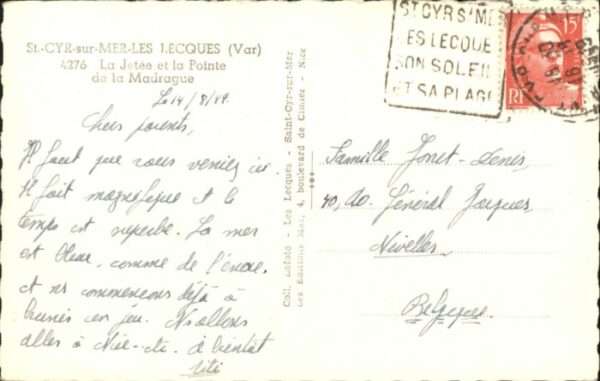 St-CYR-sur-MER-LES LECQUES (Var)
4276 La Jetée et la Pointe
de la Madrague
Le 14/8/49.
Chers parents,
Il faut que vous veniez ici.
Il fait magnifique et le
temps est superbe. La mer
est bleue comme de l'encre.
et ns commencons déjà à
en Ns allons
aller à Nice à bientôt
Titi
Coll. Lafafe - Les Lecques - Saint-Cyr-sur-Mer
Les Editions Mar, 4, boulevard de Cimiez - Nice
ST CYR S/ MER
LES LECQUE
SON SOLEIL
ET SA PLAGE
15
RF
Famille Jonet-Denis,
40, Av. Général Jacques
Nivelles
Belgique